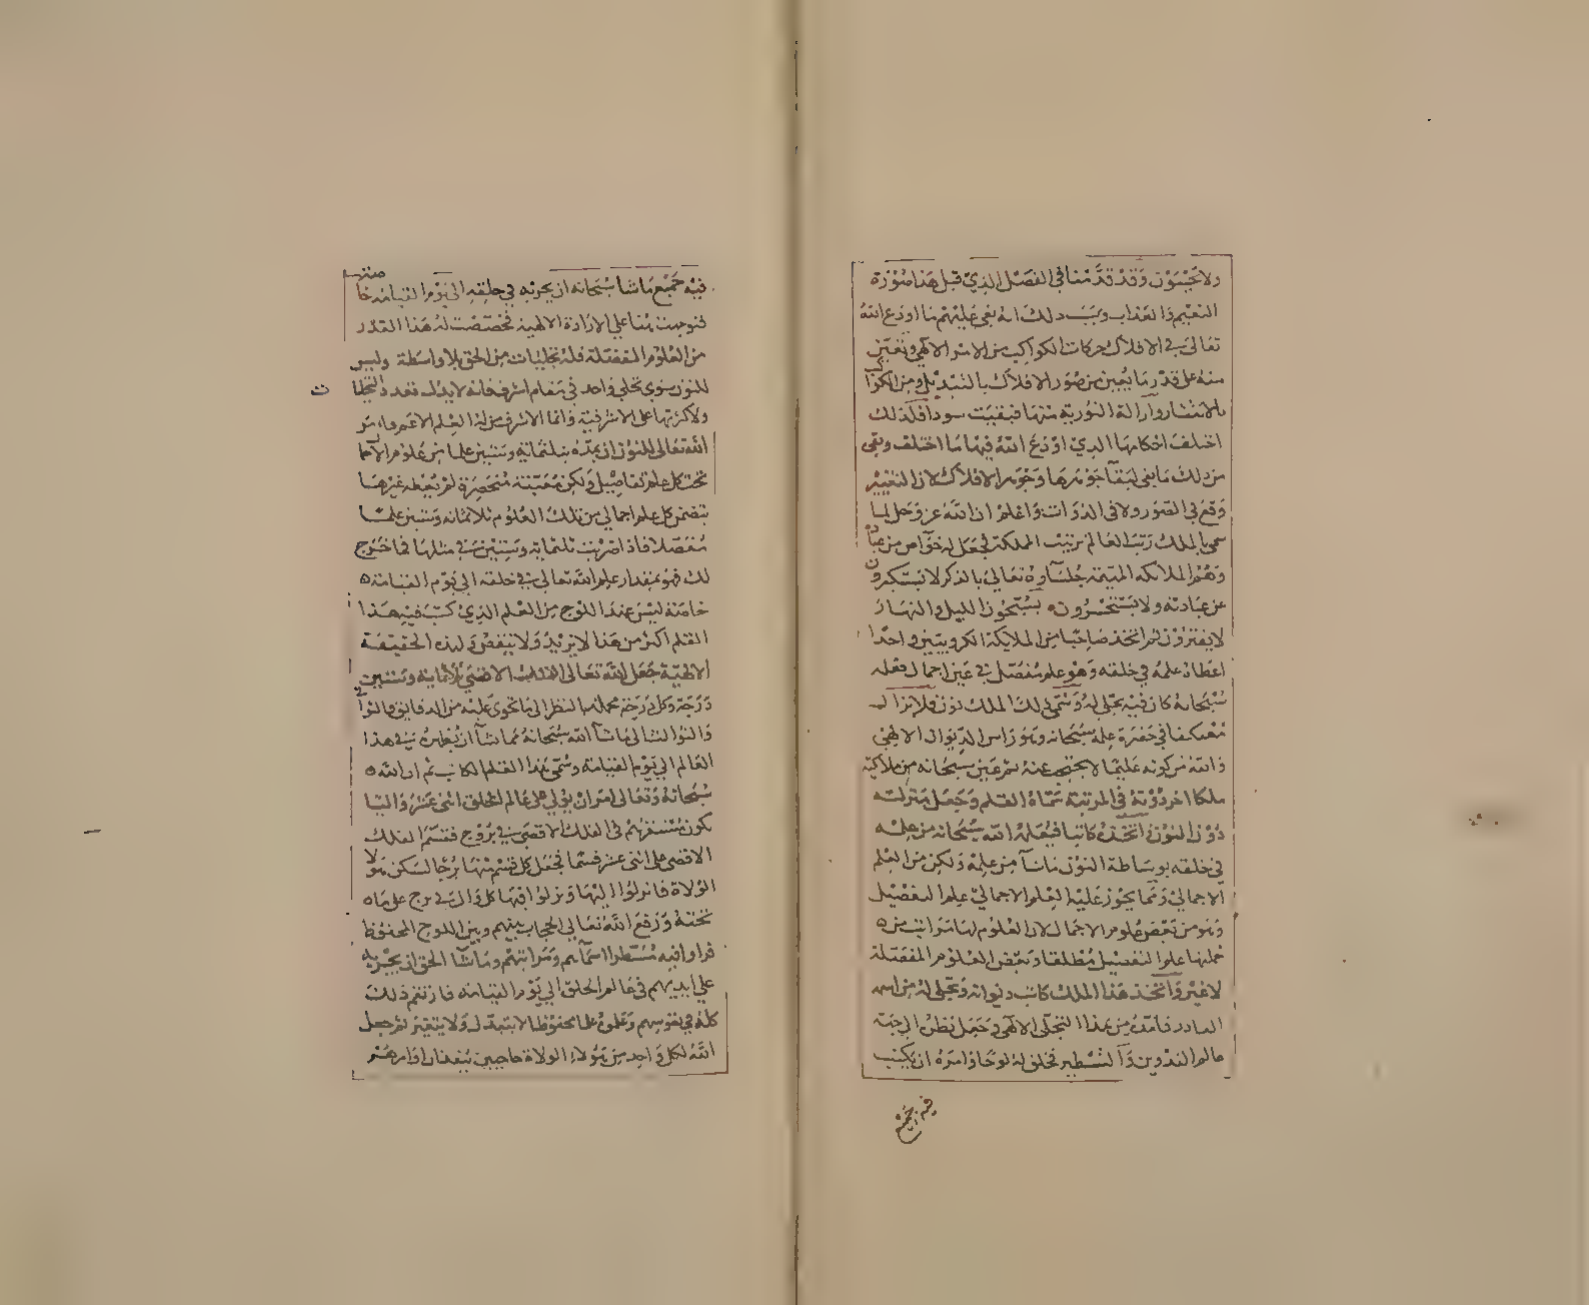 ولا تحسون وقد قدمنا في الفصل الذي قبل هذا صورة
النعيم والعذاب وسبب ذلك انه بقي عليهم ما اودع الله
تعالى في الافلاك وحركات الكواكب من الامر الالهي وتغير
منه على قدر ما تغير من صور الافلاك بالتبديل ومن الكواكب
بالانتثار وازالة النورية منها فبقيت سودا فلذلك
اختلف احكامها الذي اودع الله فيها ما اختلف وبقي
من ذلك ما بقي لبقا جوهرها وجوهر الافلاك لان التغيير
وقع في الصور ولا في الذوات واعلم ان الله عز وجل لما
سمى بالملك رتب العالم ترتيب المملكة فجعل له خواص من عباد
وهم الملائكة المهيمة جلساوه تعالى بالذكر لا يستكبرون
عن عبادته ولا يستحسرون يسبحون الليل والنهار
لا يفترون ثم اتخذ صاحبا من الملايكة الكروبيين واحدا
اعطاه علمه في خلقه وهو علم مفصل في عين اجمال فعلمه
سبحانه كان فيه مجلى له وسمى ذلك الملك نون فلا يزال
معتكفا في حضرة علمه سبحانه وهو راس الديوان الالهي
والله من كونه عليما لا يحتجب عنه ثم عين سبحانه من ملايكته
ملكا اخر دونه في المرتبة سماه القلم وجعل منزلته
دون النون اتخذه كاتبا فيعلمه الله سبحانه من علمه
في خلقه بوساطة النون ما شا من علمه ولكن من العلم
الاجمالي ومما يحوز عليه العلم الاجمالي علم التفصيل
وهو من بعض علوم الاجمال لان العلوم لها مراتب من
جملتها علم التفصيل مطلقا وبعض العلوم المفصلة
لا غير واتخذ هذا الملك كاتب ديوانه وتجلى له من اسمه
القادر فامده من هذا التجلي الالهي وجعل نظره الى جهة
عالم التدوين والتسطير فخلق له لوحا وامره ان يكتب
فيه جميع
فيه جميع ما شا سبحانه ان يجريه في خلقه الى يوم القيامة خا
منزلة
فتوجهت هنا على الارادة الالهية فخصصت له هذا القدر
من العلوم المفصلة فله تجليات من الحق بلا واسطة وليس
للنون سوى تجلي واحد في مقام اشرف فانه لا يدل تعدد التجليا
ت
ولا كثرتها على الاشرفية وانما الاشرف من له العلم الاعم وامر
الله تعالى للنون ان يمده بثلثماية وستين علما من علوم الاجما
تحت كل علم تفاصيل ولكن معينة منحصرة لم يعطه غيرها
يتضمن كل علم اجمالي من تلك العلوم ثلاثماية وستين علما
مفصلا فاذا ضربت ثلثماية وستين في مثلها فما خرج
لك فهو مقدار علم الله تعالى في خلقه الى يوم القيامة
خاصة ليس عند اللوح من العلم الذي كتب فيه هذا
القلم اكثر من هذا لا يزيد ولا ينقص ولهذه الحقيقة
الالهية جعل الله تعالى الفلك الاقصى ثلاثماية وستين
درجة وكل درجة مجملة لما تحوي عليه من الدقايق والثواني
والثوالث الى ما شا الله سبحانه مما شا ان يظهره في هذا
العالم الى يوم القيامة وسمى هذا القلم الكاتب ثم ان الله
سبحانه وتعالى امر ان يولي على عالم الخلق اثنى عشر واليا
يكون مستقرهم في الفلك الاقصى في بروج فقسم الفلك
الاقصى على اثنى عشر قسما فجعل كل قسم منها برجا لسكن هولا
الولاة فانزلوا اليها ونزلوا فيها كل وال في برج على ما
تحته ورفع الله تعالى الحجاب بينهم وبين اللوح المحفوظ
فراوا فيه مسطرا اسمآهم ومراتبهم وما شا الحق ان يجريه
على ايديهم في عالم الخلق الى يوم القيامة فارتقم ذلك
كله في نفوسهم وعلموه علما محفوظا لا يتبدل ولا يتغير ثم جعل
الله لكل واحد من هولاء الولاة حاجبين ينفذان اوامرهم